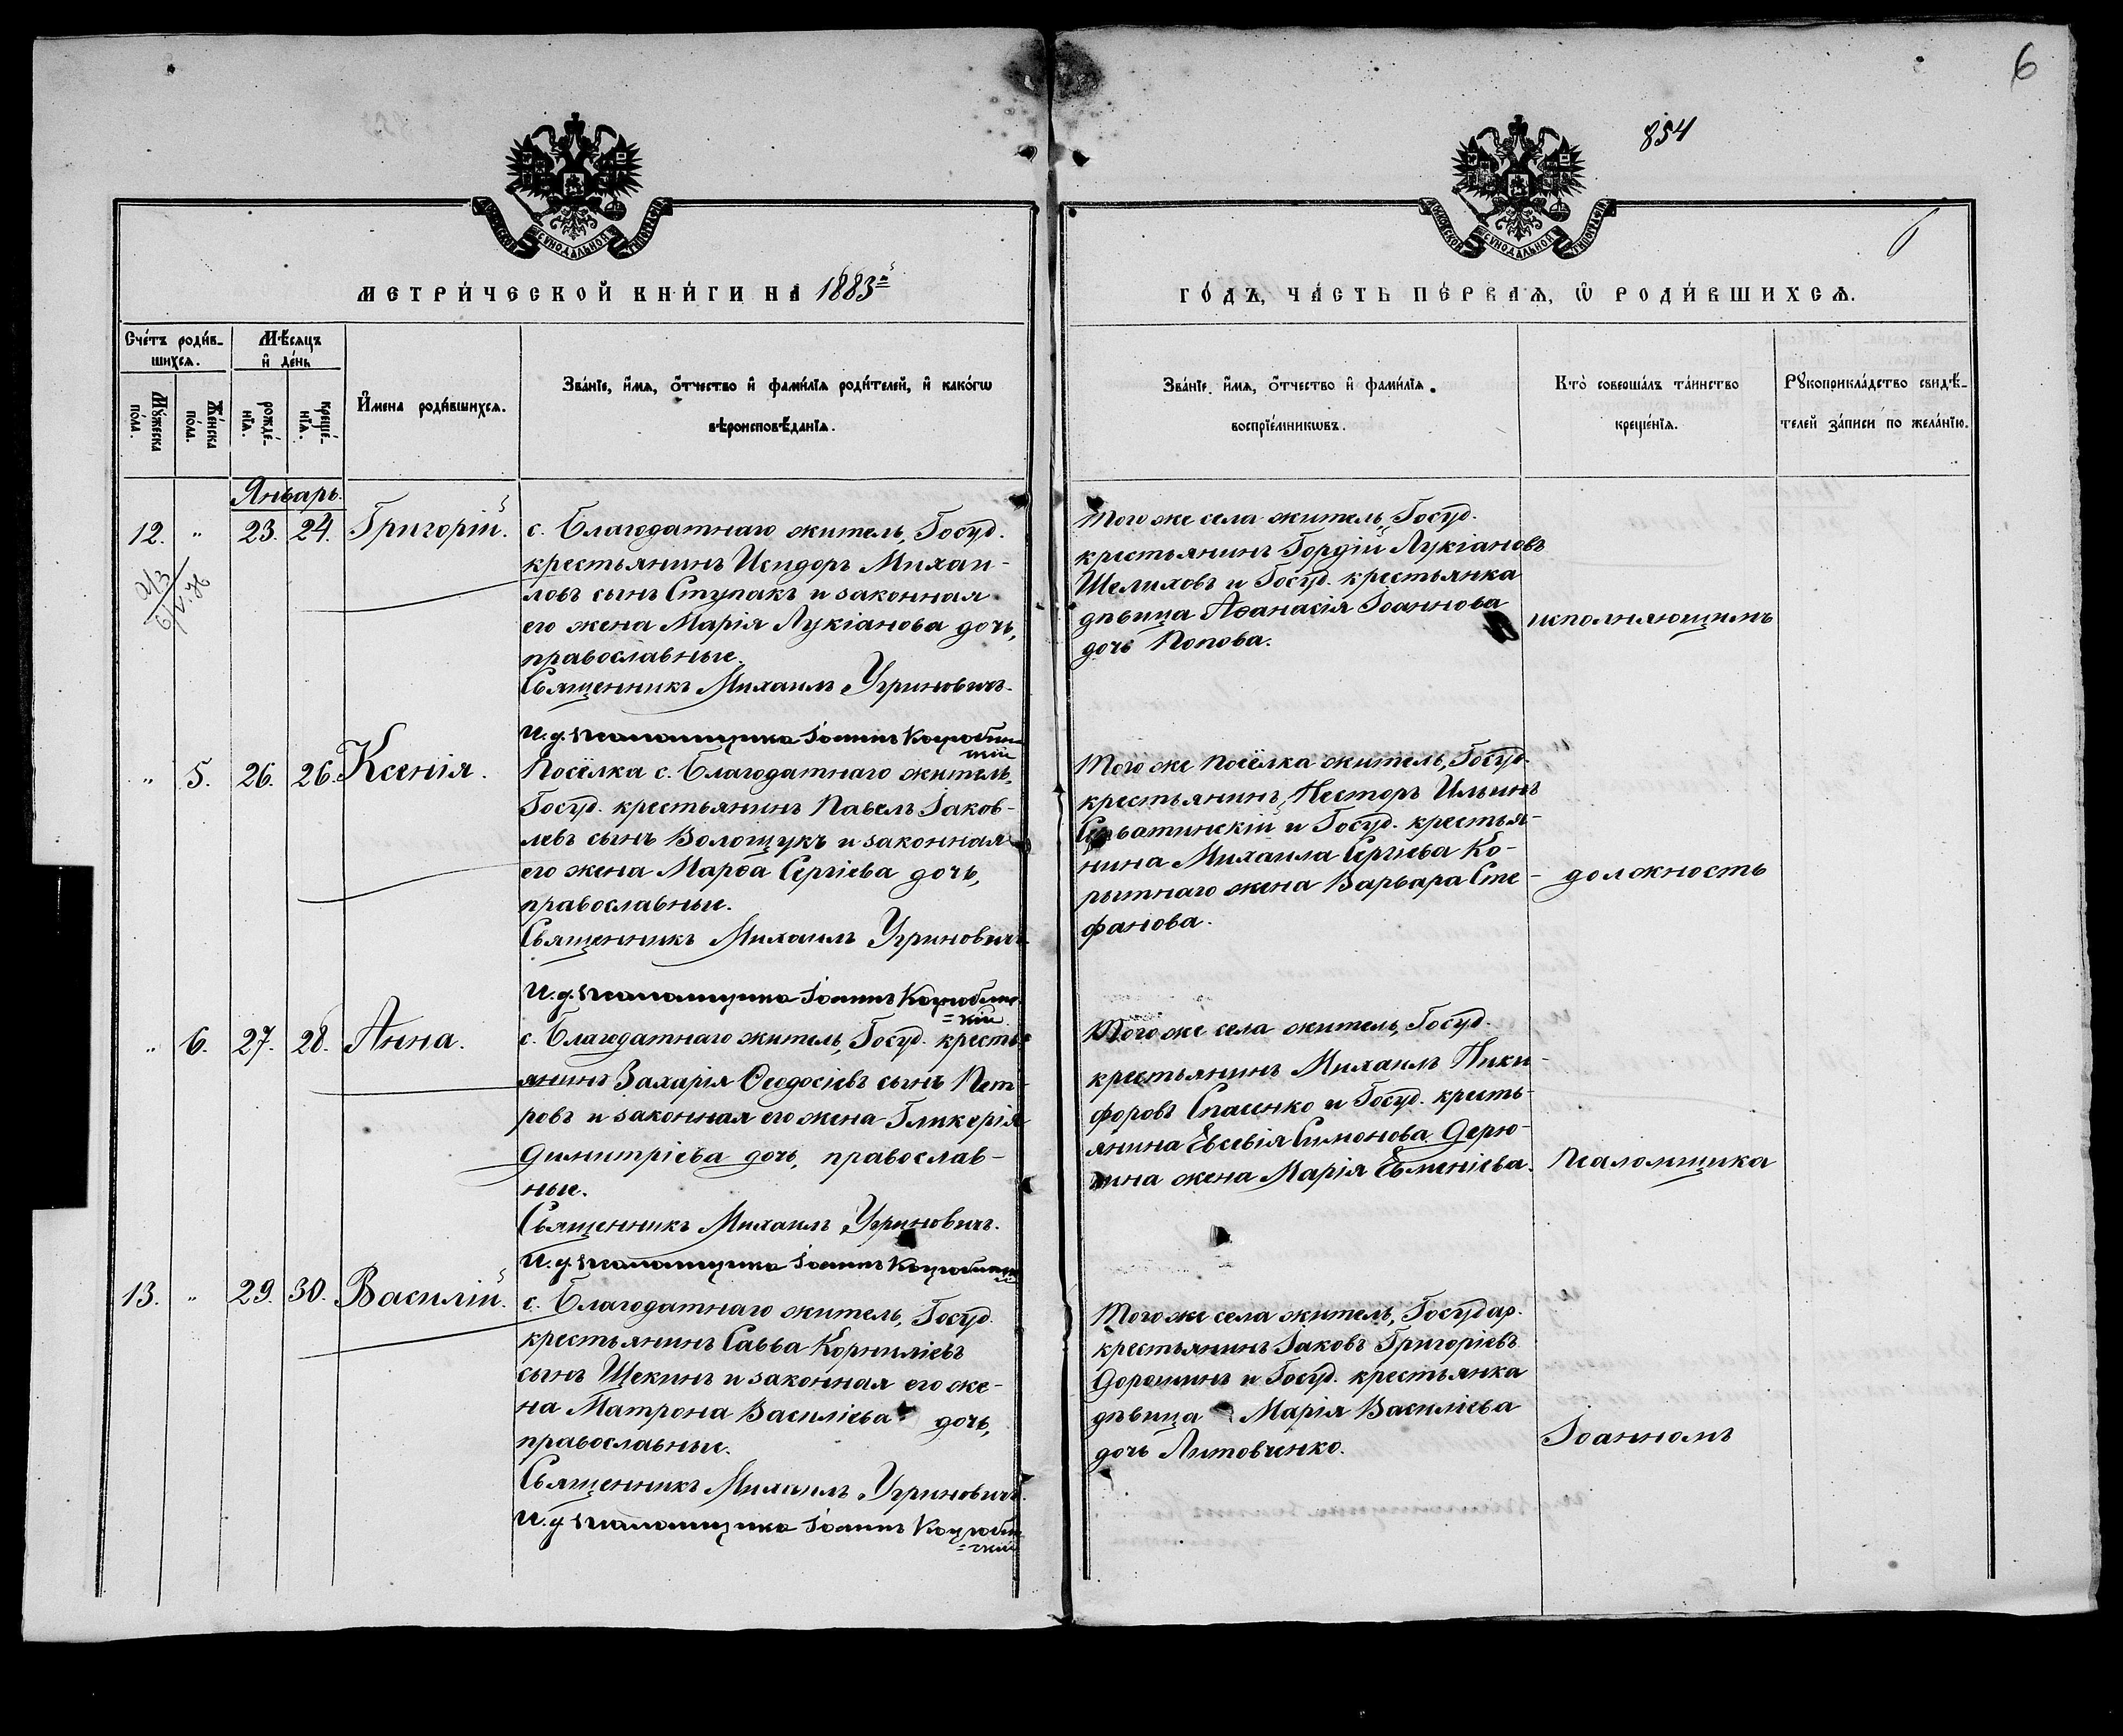 6
854
6
МОСКОВСКОЙ СУНОДАЛЬНОЙ ТИПОГРАФІИ
МОСКОВСКОЙ СУНОДАЛЬНОЙ ТИПОГРАФІИ
МЕТРИ́ЧЕСКОЙ КНИ́ГИ НА 1883й
ГО́ДЪ, ЧА́СТЬ ПЕ́РВАѦ, Ѡ РОДИ́ВШИХСѦ.
Сче́тъ роди́в-
шихсѧ.
Мѣ́сѧцъ
и҆ де́нь
Му́жеска
по́ла.
Же́нска
по́ла.
рожде́-
нїѧ.
креще́-
нїѧ.
И҆мена роди́вшихсѧ.
Зва́нїе, и҆́мѧ, ѻ҆́тчество и҆ фами́лїѧ роди́телей, и҆ како́гѡ
вѣроисповѣ́данїѧ.
Зва́нїе, и҆́мѧ, ѻ҆́тчество и҆ фами́лїѧ
воспрїе́мникѡвъ.
Кто̀ соверша́лъ та́инство
креще́нїѧ.
Рꙋкоприкла́дство свидѣ́-
телей за́писи по жела́нїю.
Январь.
12. " 23. 24. Григорій.
с. Благодатнаго житель, Госуд.
крестьянинъ Исидоръ Михаи-
ловъ сынъ Ступакъ и законная
его жена Марія Лукіанова дочь,
православные.
Священникъ Михаилъ Угриновичъ.
И. д. псаломщика Іоаннъ
Того же села житель, Госуд.
крестьянинъ Гордій Лукіановъ
Шелиховъ и Госуд. крестьянка
дѣвица Аѳанасія Іоаннова
дочь Попова.
исполняющимъ
" 5. 26. 26. Ксенія.
Посёлка с. Благодатнаго житель,
Госуд. крестьянинъ Павелъ Іаков-
левъ сынъ Волощукъ и законная
его жена Марѳа Сергіева дочь,
православные.
Священникъ Михаилъ Угриновичъ.
И. д. псаломщика Іоаннъ
Того же посёлка житель, Госуд.
крестьянинъ, Несторъ Ильинъ
и Госуд. крестья-
нина Михаила Сергіева Ко-
рытнаго жена Варвара Сте-
фанова.
должность
" 6. 27. 28. Анна.
с. Благодатнаго житель, Госуд. кресть-
янинъ Захарія Ѳеодосіевъ сынъ Пет-
ровъ и законная его жена Гликерія
Димитріева дочь, православ-
ные.
Священникъ Михаилъ Угриновичъ.
И. д. псаломщика Іоаннъ
Того же села житель, Госуд.
крестьянинъ Михаилъ Ники-
форовъ Спасенко и Госуд. кресть-
янина Евсевія Симонова Дерю-
гина жена Марія Евменіева.
псаломщика
13. " 29. 30. Василій.
с. Благодатнаго житель, Госуд.
крестьянинъ Савва Корниліевъ
сынъ Щекинъ и законная его же-
на Матрона Василіева дочь,
православные.
Священникъ Михаилъ Угриновичъ.
И. д. псаломщика Іоаннъ
Того же села житель, Государ.
крестьянинъ Іаковъ Григоріевъ
Дорошинъ и Госуд. крестьянка
дѣвица Марія Василіева
дочь Литовченко.
Іоанномъ